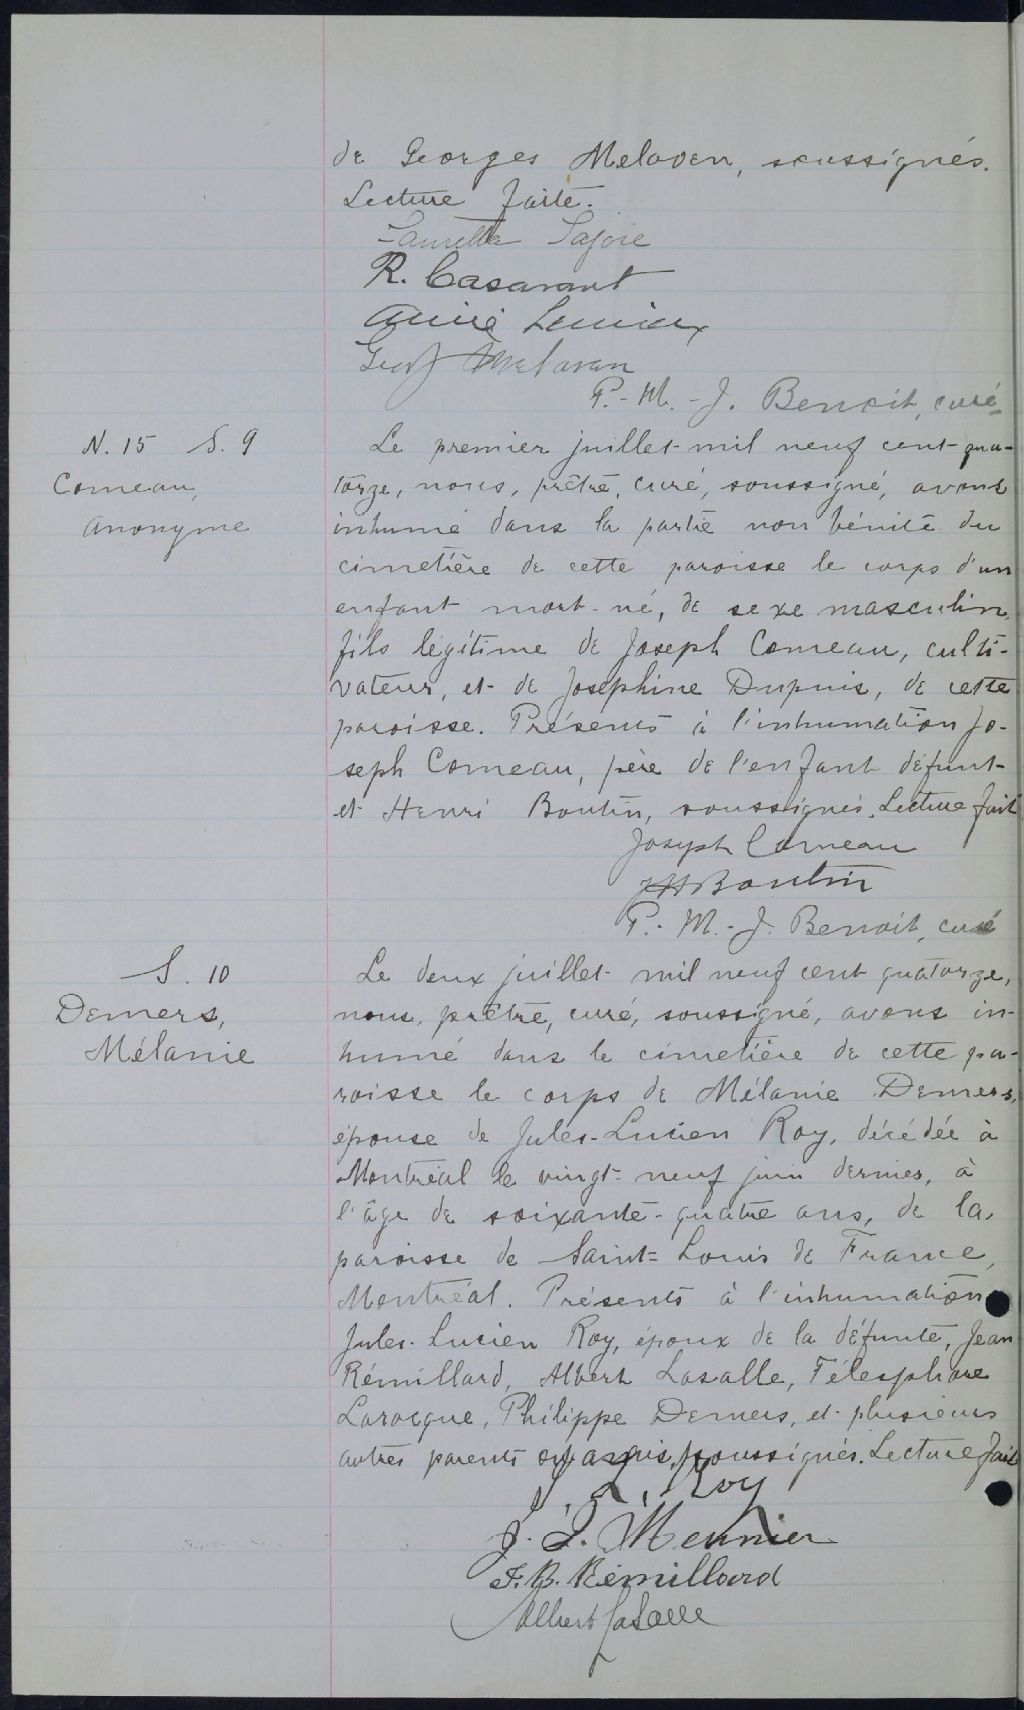 de Georges Meloven, soussignés.
Lecture faite.
Lauretta Lajoie
R. Casavant
Lemieux
Geo Meloven
P.-M.-J. Benoit, curé
N. 15 S. 9
Comeau,
Anonyme
Le premier juillet mil neuf cent qua-
torze, nous, prêtre, curé, soussigné, avons
inhumé dans la partie non bénite du
cimetière de cette paroisse le corps d'un
enfant mort-né, de sexe masculin,
fils légitime de Joseph Comeau, culti-
vateur, et de Joséphine Dupuis, de cette
paroisse. Présents à l'inhumation Jo-
seph Comeau, père de l'enfant défunt
et Henri Boutin, soussignés. Lecture fait
Joseph Comeau
JH Boutin
P.-M.-J. Benoit, curé
S. 10
Demers,
Mélanie
Le deux juillet mil neuf cent quatorze,
nous, prêtre, curé, soussigné, avons in-
humé dans le cimetière de cette pa-
roisse le corps de Mélanie Demers,
épouse de Jules-Lucien Roy, décédée à
Montréal le vingt-neuf juin dernier, à
l'âge de soixante-quatre ans, de la
paroisse de Saint-Louis de France,
Montréal. Présents à l'inhumation
Jules-Lucien Roy, époux de la défunte, Jean
Rémillard, Albert Lasalle, Télesphore
Larocque, Philippe Demers, et plusieurs
autres parents et amis, soussignés. Lecture fait
J. L. Roy
J. J. Meunier
J. B. Rémillard
Albert LaSalle